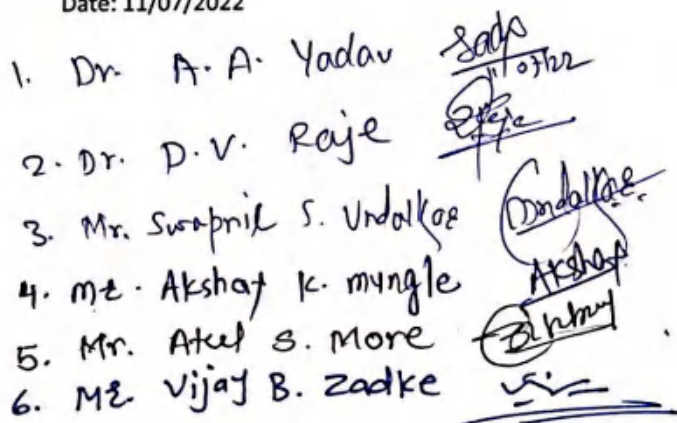 Date: 11/07/2022
1. Dr. A. A. Yadav
11/07/22
2. Dr. D. V. Raje
3. Mr. Swapnil S. Undalkar
4. Mr. Akshay K. mungle Akshay
5. Mr. Atul S. More
6. Mr. Vijay B. Zadke